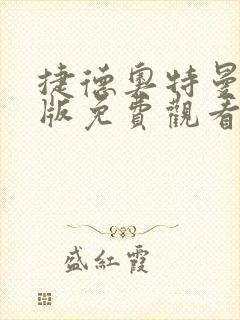 捷德奧特曼
版免費觀看
盛紅霞